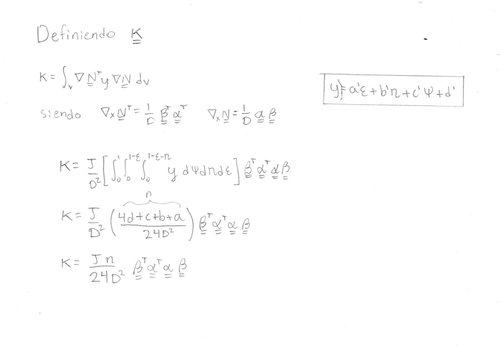 Definiendo K
K = ∫ᵥ ∇Nᵀ y ∇N dv
y = a'ε + b'η + c'Ψ + d'
siendo ∇ₓNᵀ = 1/D βᵀ αᵀ ∇ₓN = 1/D α β
K = J/D² [∫₀¹ ∫₀^(1-ε) ∫₀^(1-ε-η) y dΨ dη dε] βᵀ αᵀ α β
n
K = J/D² ((4d+c+b+a)/24D²) βᵀ αᵀ α β
K = J n/24D² βᵀ αᵀ α β